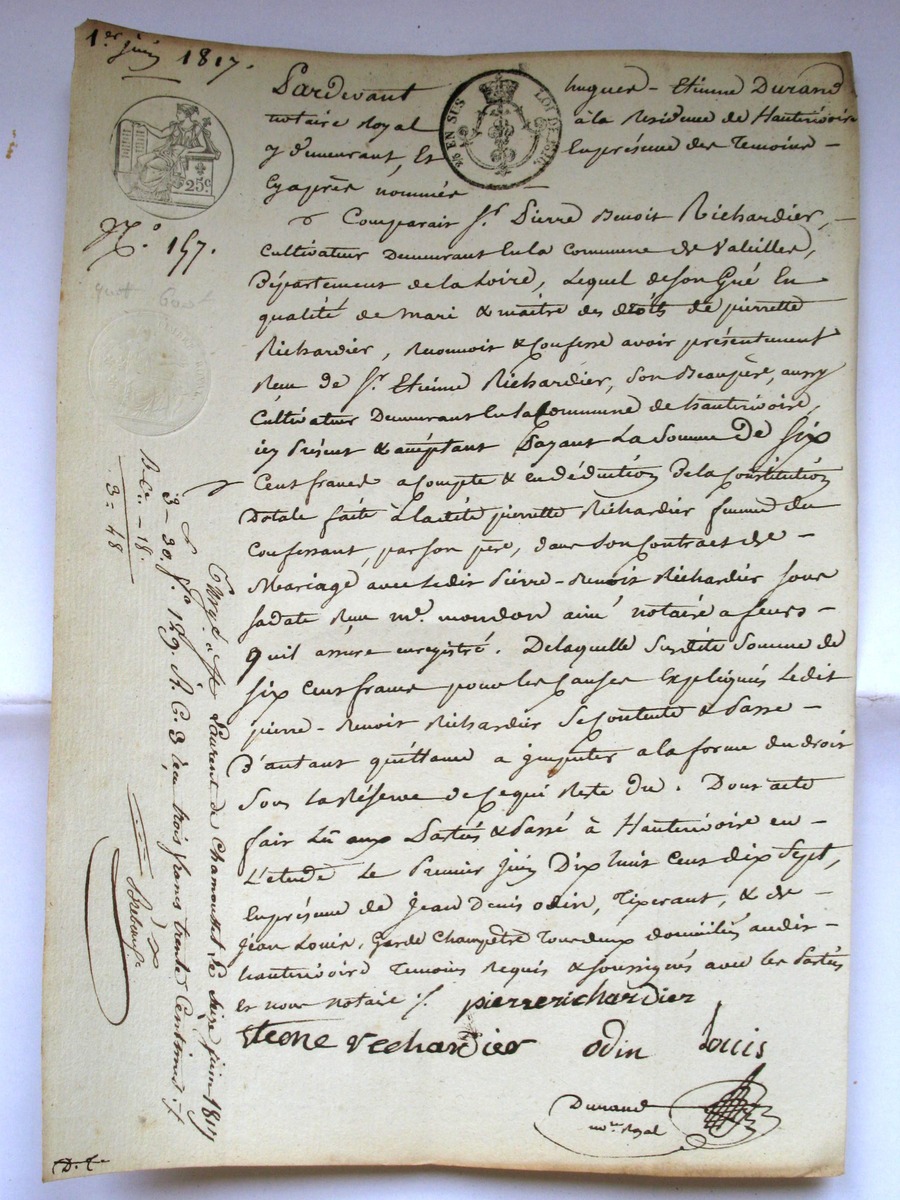 1er juin 1817.
Pardevant hugues - Etienne Durand
notaire Royal à la Residence de Hauterivoire
y demeurant, Et En présence des Temoins -
Cy après nommés
EN SUS LOI DE 1816
25c
N.o 157.
Comparait Sr. Pierre Benoit Richardier, -
Cultivateur Demeurant En la Commune de Valeilles,
Département de la Loire, Lequel de son Gré En
qualité de mari & maitre des droits de pierrette
Richardier, Reconnoit & Confesse avoir présentement
Reçu de Sr. Etienne Richardier, Son Beaupère, aussy
Cultivateur Demeurant En la Commune de hauterivoire,
icy Présent & acceptant Payant La Somme de Six
Cent francs a Compte & en déduction De la Constitution
Dotale faite à Ladite pierrette Richardier femme du
Confessant, par son père, dans Son Contract de -
Mariage avec Ledit Pierre - Benoit Richardier Sous
Sa date Reçu me. mondon ainé notaire a feurs -
qu'il assure enregistré. De laquelle Susdite Somme de
Six Cent francs pour les Causes Expliquées Ledit
pierre - Benoit Richardier Se Contente & Passe -
D'autant quittance a imputer a la forme du droit
Sous la Réserve de Ce qui Reste du. Dont acte
fait Lû aux Parties & Passé à Hauterivoire en -
L'étude Le Premier juin Dix huit Cent dix Sept,
En présence de Jean Denis odin, Tixerant, & de -
Jean Louis, Garde Champêtre Tous deux domiciliés audit -
hauterivoire Temoins Requis & Soussignés avec les Parties
Et nous notaire
pierre richardier
Etiene rechardier odin Louis
Durand
nore. Royal
Enregé. à St Laurent de Chamousset, le Seize juin 1817
fo. 159. R. C. 3 reçu trois francs trente Centimes
3 - 30.
- 18.
3 = 48